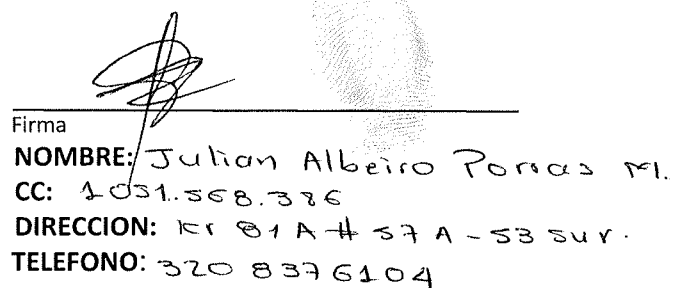 Firma
NOMBRE: Julian Albeiro Porras M.
CC: 1031.568.386
DIRECCION: Kr 81 A # 57 A - 53 Sur.
TELEFONO: 320 837 6104